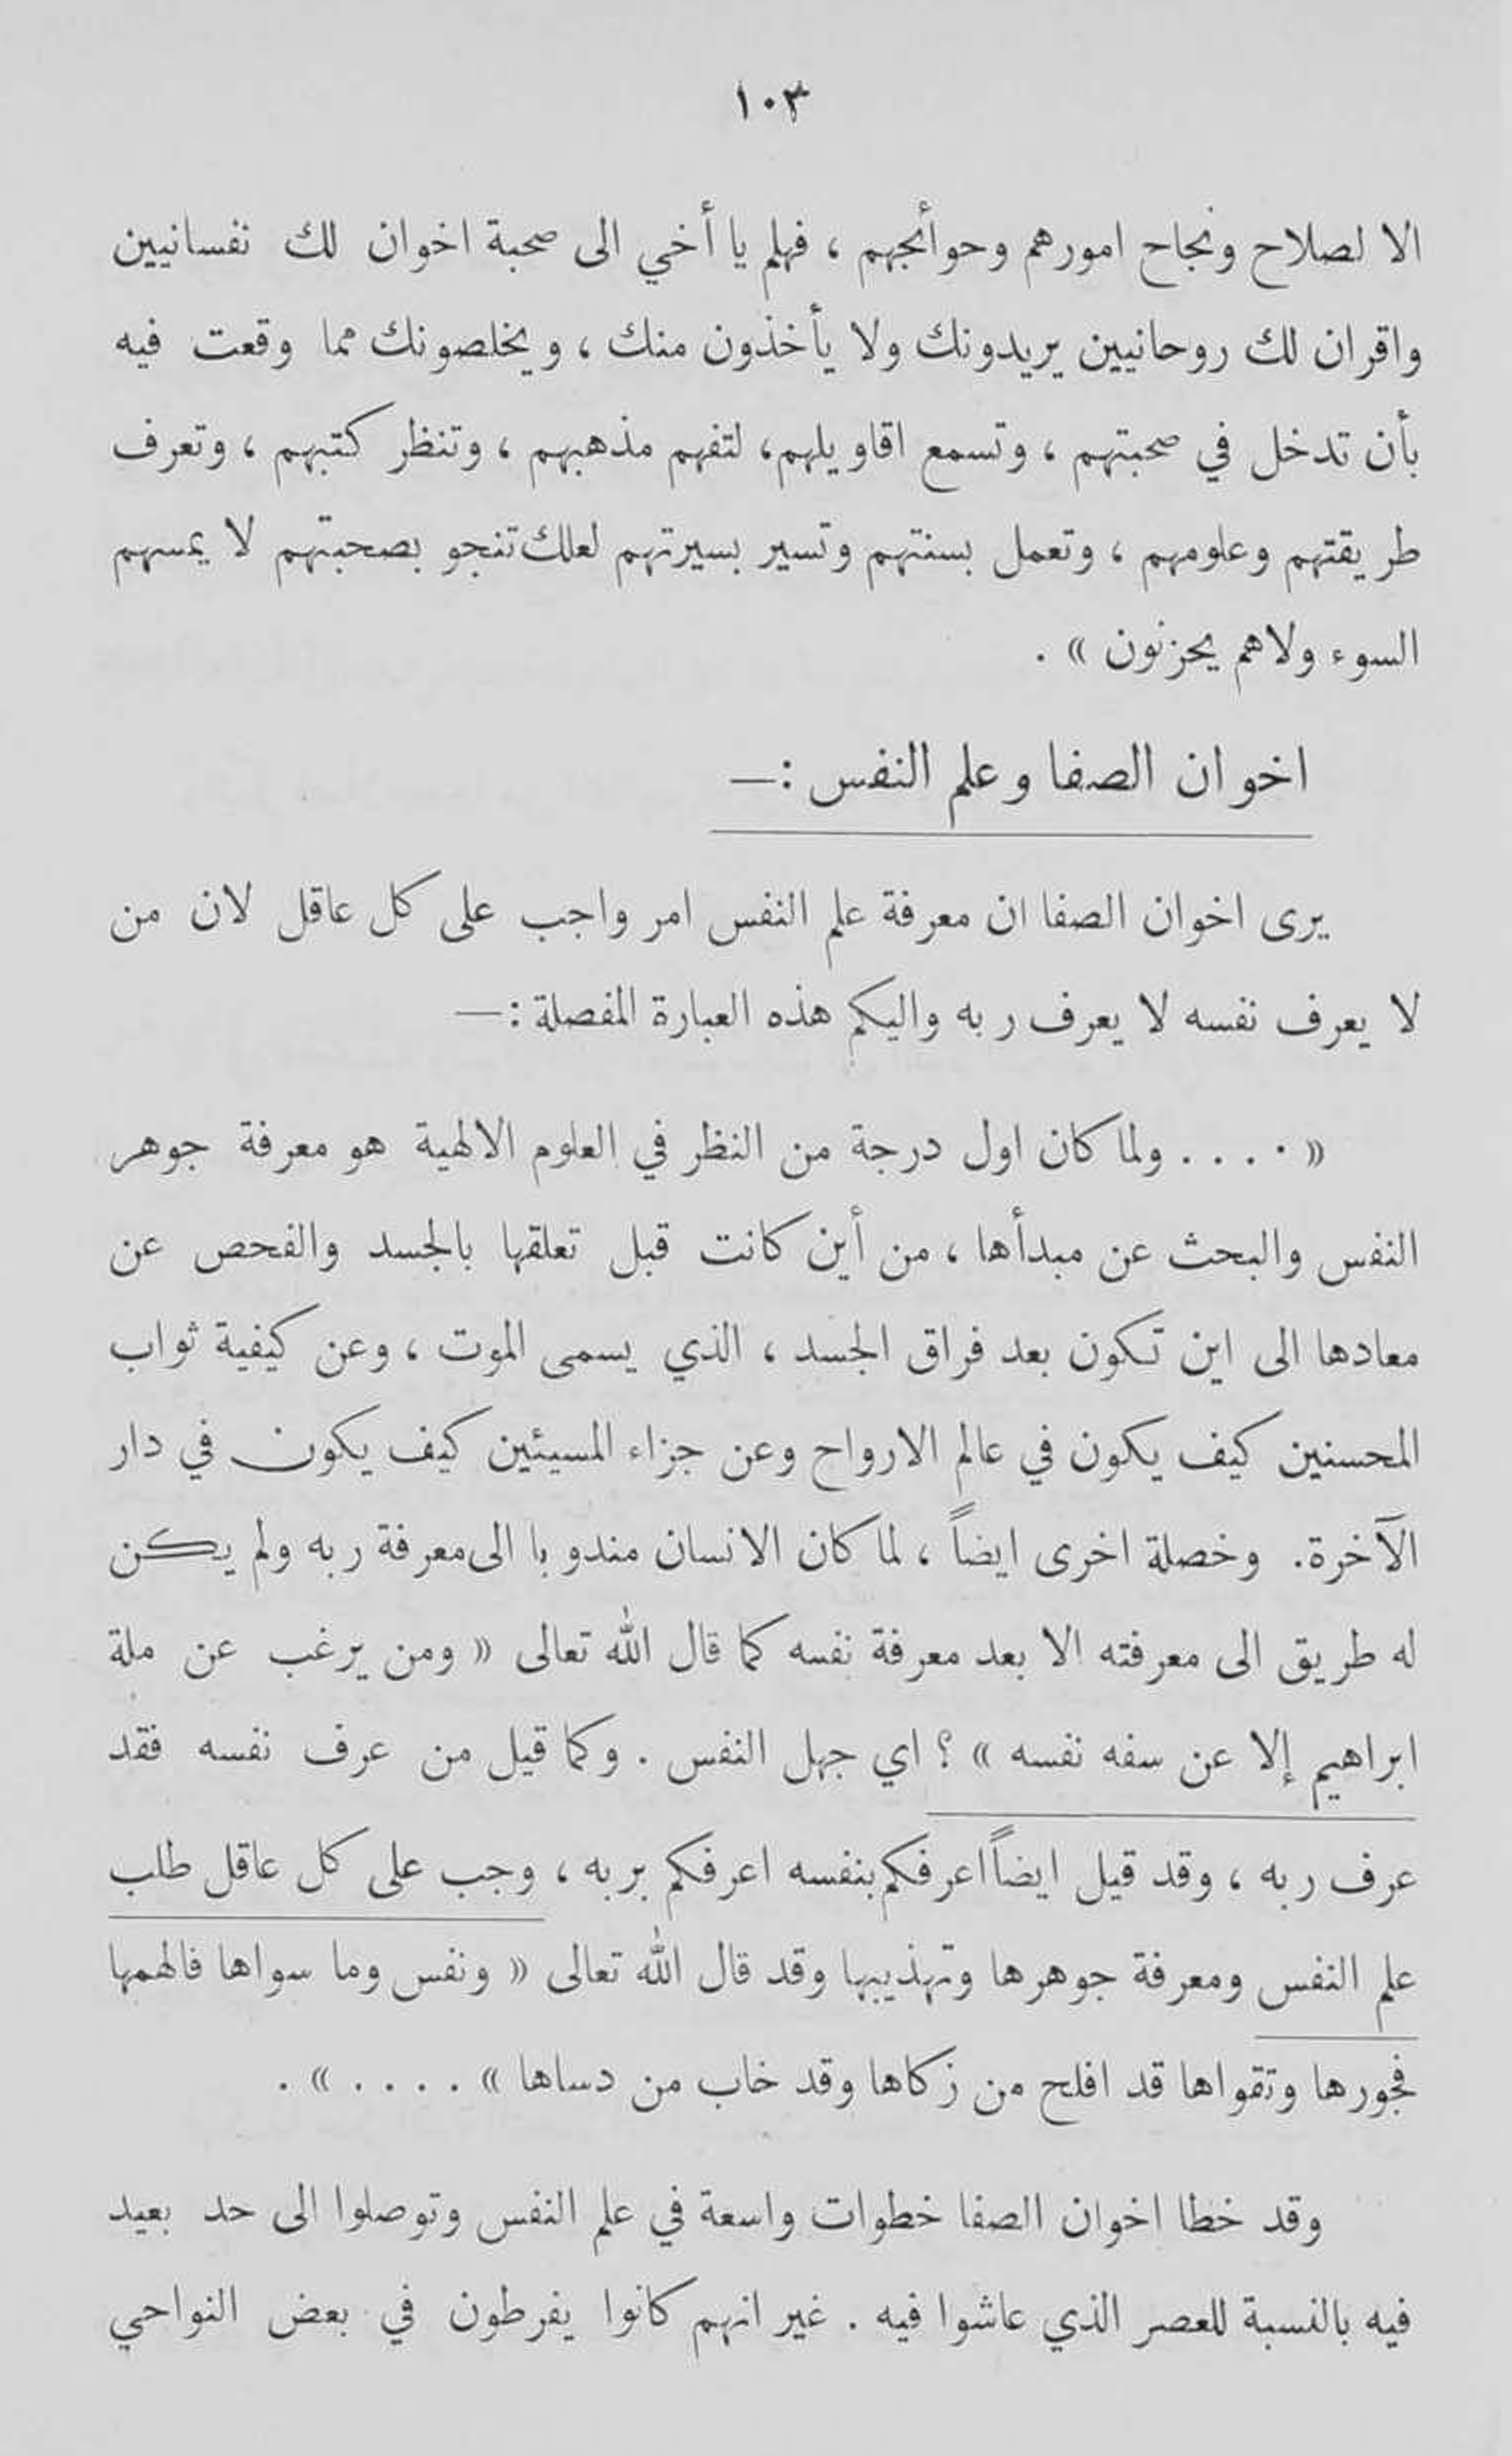 ١٠٣
الا لصلاح ونجاح امورهم وحوأئجهم ، فهلم يا أخي الى صحبة اخوان لك نفسانيين
واقران لك روحانيين يريدونك ولا يأخذون منك ، ويخلصونك مما وقعت فيه
بأن تدخل في صحبتهم ، وتسمع اقاويلهم، لتفهم مذهبهم ، وتنظر كتبهم ، وتعرف
طريقتهم وعلومهم ، وتعمل بسنتهم وتسير بسيرتهم لعلك تنجو بصحبتهم لا يمسهم
السوء ولاهم يحزنون » .
اخوان الصفا وعلم النفس :—
يرى اخوان الصفا ان معرفة علم النفس امر واجب على كل عاقل لان من
لا يعرف نفسه لا يعرف ربه واليكم هذه العبارة المفصلة :—
« . . . . ولما كان اول درجة من النظر في العلوم الالهية هو معرفة جوهر
النفس والبحث عن مبدأها ، من أين كانت قبل تعلقها بالجسد والفحص عن
معادها الى اين تكون بعد فراق الجسد ، الذي يسمى الموت ، وعن كيفية ثواب
المحسنين كيف يكون في عالم الارواح وعن جزاء المسيئين كيف يكون في دار
الآخرة. وخصلة اخرى ايضاً ، لما كان الانسان مندوبا الى معرفة ربه ولم يكن
له طريق الى معرفته الا بعد معرفة نفسه كما قال الله تعالى « ومن يرغب عن ملة
ابراهيم إلا عن سفه نفسه » ؟ اي جهل النفس . وكما قيل من عرف نفسه فقد
عرف ربه ، وقد قيل ايضاً اعرفكم بنفسه اعرفكم بربه ، وجب على كل عاقل طلب
علم النفس ومعرفة جوهرها وتهذيبها وقد قال الله تعالى « ونفس وما سواها فالهمها
فجورها وتقواها قد افلح من زكاها وقد خاب من دساها » . . . . » .
وقد خطا اخوان الصفا خطوات واسعة في علم النفس وتوصلوا الى حد بعيد
فيه بالنسبة للعصر الذي عاشوا فيه . غير انهم كانوا يفرطون في بعض النواحي